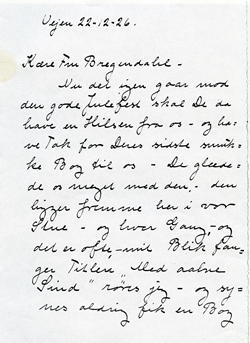 Vejen 22-12-26.
Kære Fru Bregendahl -
Nu det igen gaar mod
den gode Julefest skal De da
have en Hilsen fra os - og ha-
ve Tak for Deres sidste smuk-
ke Bog til os - De glæde-
de os meget med den, - den
ligger fremme her i vor
Stue - og hver Gang, og
det er ofte, mit Blik fan-
ger Titlen, "Med aabne
Sind" røres jeg - og sy-
nes aldrig fik en Bog